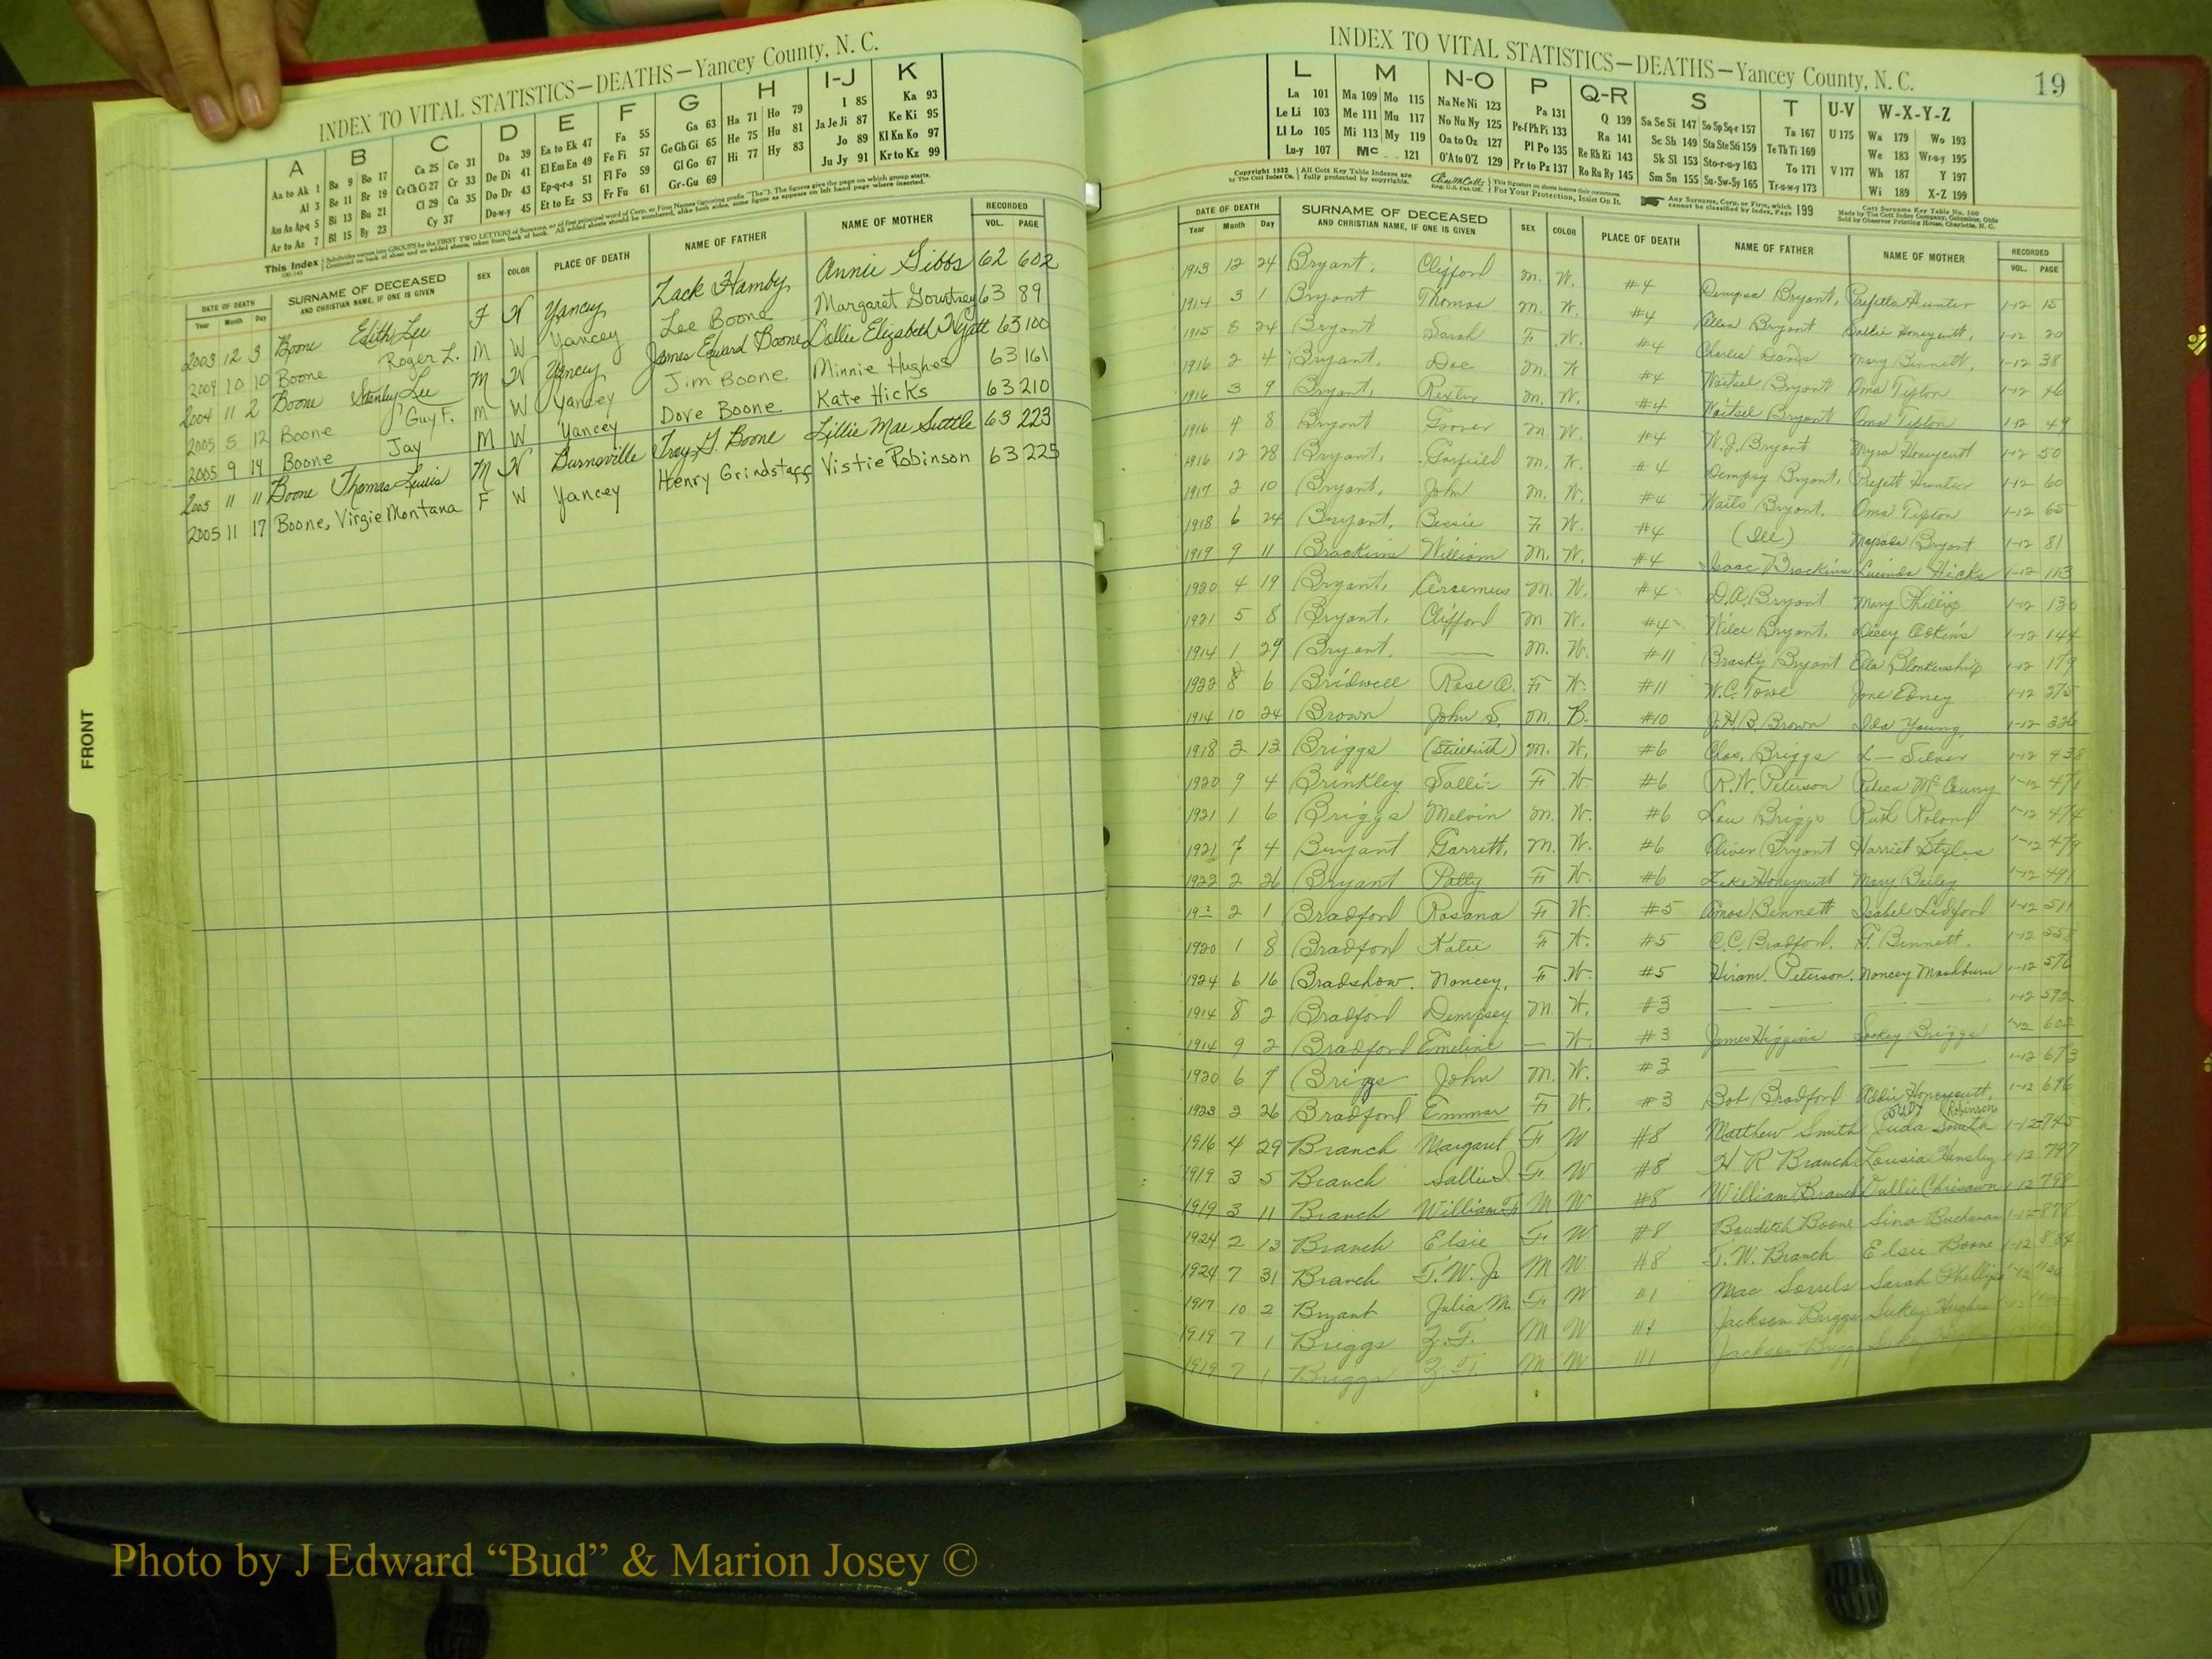 INDEX TO VITAL STATISTICS—DEATHS—Yancey County, N. C.
A B C D E F G H I-J K
Aa to Ak 1 Ba 9 Bo 17 Ca 25 Co 31 Da 39 Ea to Ek 47 Fa 55 Ga 63 Ha 71 Ho 79 I 85 Ka 93
Al 3 Be 11 Br 19 Ce Ch Ci 27 Cr 33 De Di 41 El Em En 49 Fe Fi 57 Ge Gh Gi 65 He 75 Hu 81 Ja Je Ji 87 Ke Ki 95
Am An Ap-q 5 Bi 13 Bu 21 Cl 29 Cu 35 Do Dr 43 Ep-q-r-s 51 Fl Fo 59 Gl Go 67 Hi 77 Hy 83 Jo 89 Kl Kn Ko 97
Ar to Az 7 Bl 15 By 23 Cy 37 Du-w-y 45 Et to Ez 53 Fr Fu 61 Gr-Gu 69 Ju Jy 91 Kr to Kz 99
This Index
DATE OF DEATH SURNAME OF DECEASED SEX COLOR PLACE OF DEATH NAME OF FATHER NAME OF MOTHER RECORDED
Year Month Day AND CHRISTIAN NAME, IF ONE IS GIVEN VOL. PAGE
2003 12 3 Boone Edith Lee F W Yancey Zack Hamby Annie Gibbs 62 602
2004 10 10 Boone Roger L. M W Yancey Lee Boone Margaret 63 89
2004 11 2 Boone Stanley Lee M W Yancey James Edward Boone Dollie Elizabeth Hyatt 63 100
2005 5 12 Boone Guy F. M W Yancey Jim Boone Minnie Hughes 63 161
2005 9 14 Boone Jay M W Yancey Dove Boone Kate Hicks 63 210
2005 11 11 Boone Thomas Lewis M W Burnsville Troy G. Boone Lillie Mae Suttle 63 223
2005 11 17 Boone, Virgie Montana F W Yancey Henry Grindstaff Vistie Robinson 63 225
FRONT
INDEX TO VITAL STATISTICS—DEATHS—Yancey County, N. C. 19
L M N-O P Q-R S T U-V W-X-Y-Z
La 101 Ma 109 Mo 115 Na Ne Ni 123 Pa 131 Q 139 Sa Se Si 147 So Sp Sq-r 157 Ta 167 U 175 Wa 179 Wo 193
Le Li 103 Me 111 Mu 117 No Nu Ny 125 Pe-f Ph Pi 133 Ra 141 Sc Sh 149 Sta Ste Sti 159 Te Th Ti 169 We 183 Wr-u-y 195
Ll Lo 105 Mi 113 My 119 Oa to Oz 127 Pl Po 135 Re Rh Ri 143 Sk Sl 153 Sto-r-u-y 163 To 171 V 177 Wh 187 Y 197
Lu-y 107 Mc 121 O'A to O'Z 129 Pr to Pz 137 Ro Ru Ry 145 Sm Sn 155 Su-Sw-Sy 165 Tr-u-w-y 173 Wi 189 X-Z 199
DATE OF DEATH SURNAME OF DECEASED SEX COLOR PLACE OF DEATH NAME OF FATHER NAME OF MOTHER RECORDED
Year Month Day AND CHRISTIAN NAME, IF ONE IS GIVEN VOL. PAGE
1913 12 24 Bryant, Clifford M. W. #4 Dempsa Bryant, Hunter 1-12 15
1914 3 1 Bryant Thomas M. W. #4 Allen Bryant Sallie Honeycutt, 1-12 20
1915 8 24 Bryant Sarah F W. #4 Charlie Davis Mary Bennett, 1-12 38
1916 2 4 Bryant, Doe M. W #4 Waitsel Bryant Oma Tipton 1-12 46
1916 3 9 Bryant, Rexter M. W. #4 Waitsel Bryant Oma Tipton 1-12 49
1916 4 8 Bryant Grover M. W. #4 W. J. Bryant Myra Honeycutt 1-12 50
1916 12 28 Bryant, Garfield M. W. #4 Dempsy Bryant, Hunter 1-12 60
1917 2 10 Bryant, John M. W. #4 Waits Bryant, Oma Tipton 1-12 65
1918 6 24 Bryant, Bessie F W. #4 (Ill) Bryant 1-12 81
1919 9 11 Brackins William M. W. #4 Isaac Brackins Lucinda Hicks 1-12 113
1920 4 19 Bryant, M. W. #4 D. A. Bryant Mary Phillips 1-12
1921 5 8 Bryant, Clifford M W. #4 Bryant, Dicey 1-12 144
1914 1 29 Bryant, — M. W. #11 Brasky Bryant Ella Blankenship 1-12 179
1922 8 6 Bridwell Rose A. F W. #11 W. C. Towe Jane Edney 1-12 275
1914 10 24 Brown John S. M. B. #10 J. H. B. Brown Ida Young, 1-12 326
1918 3 13 Briggs (Stillbirth) M. W. #6 Chas. Briggs L — Silver 1-12 438
1920 9 4 Brinkley Sallie F W. #6 R. W. Peterson McCurry 1-12 471
1921 1 6 Briggs Melvin M. W. #6 Briggs Ruth Roland 1-12 474
1921 7 4 Bryant Garrett, M. W. #6 Oliver Bryant Harriet Styles 1-12 479
1922 2 26 Bryant Polly F W. #6 Zeke Honeycutt Mary Bailey 1-12 491
2 1 Bradford Rosana F W. #5 Amos Bennett Isabel Ledford 1-12 511
1920 1 8 Bradford Katie F W. #5 C. C. Bradford, F. Bennett. 1-12 558
1924 6 16 Bradshaw. Nancey, F. W. #5 Hiram Peterson, Nancey Mashburn 1-12 576
1914 8 2 Bradford Dempsey M. W. #3 — — 1-12 592
1914 9 2 Bradford Emeline — W. #3 James Higgins Sookey Briggs 1-12 602
1920 6 7 Briggs John M. W. #3 — — 1-12 673
1923 2 26 Bradford Emma F W. #3 Bob Bradford Addie Honeycutt, 1-12 696
1916 4 29 Branch Margaret F W #8 Matthew Smith Juda Smith Judy Robinson 1-12 745
1919 3 5 Branch Sallie F. W #8 H R Branch Lousia Hensley 1-12 797
1919 3 11 Branch William F M W #8 William Branch Dullie Chrisawn 1-12 798
1924 2 13 Branch Elsie F. W #8 Bowditch Boone Sina Buchanan 1-12 878
1924 7 31 Branch T. W. Jr M W #8 T. W. Branch Elsie Boone 1-12 884
1917 10 2 Bryant Julia M. F. W #1 Mac Sorrels Sarah Phillips 1-12
1919 7 1 Briggs Z. T. M W #1 Jackson Briggs Sukey Hughes
1919 7 1 Briggs Z. T. M W #1 Jackson Briggs
Photo by J Edward “Bud” & Marion Josey ©